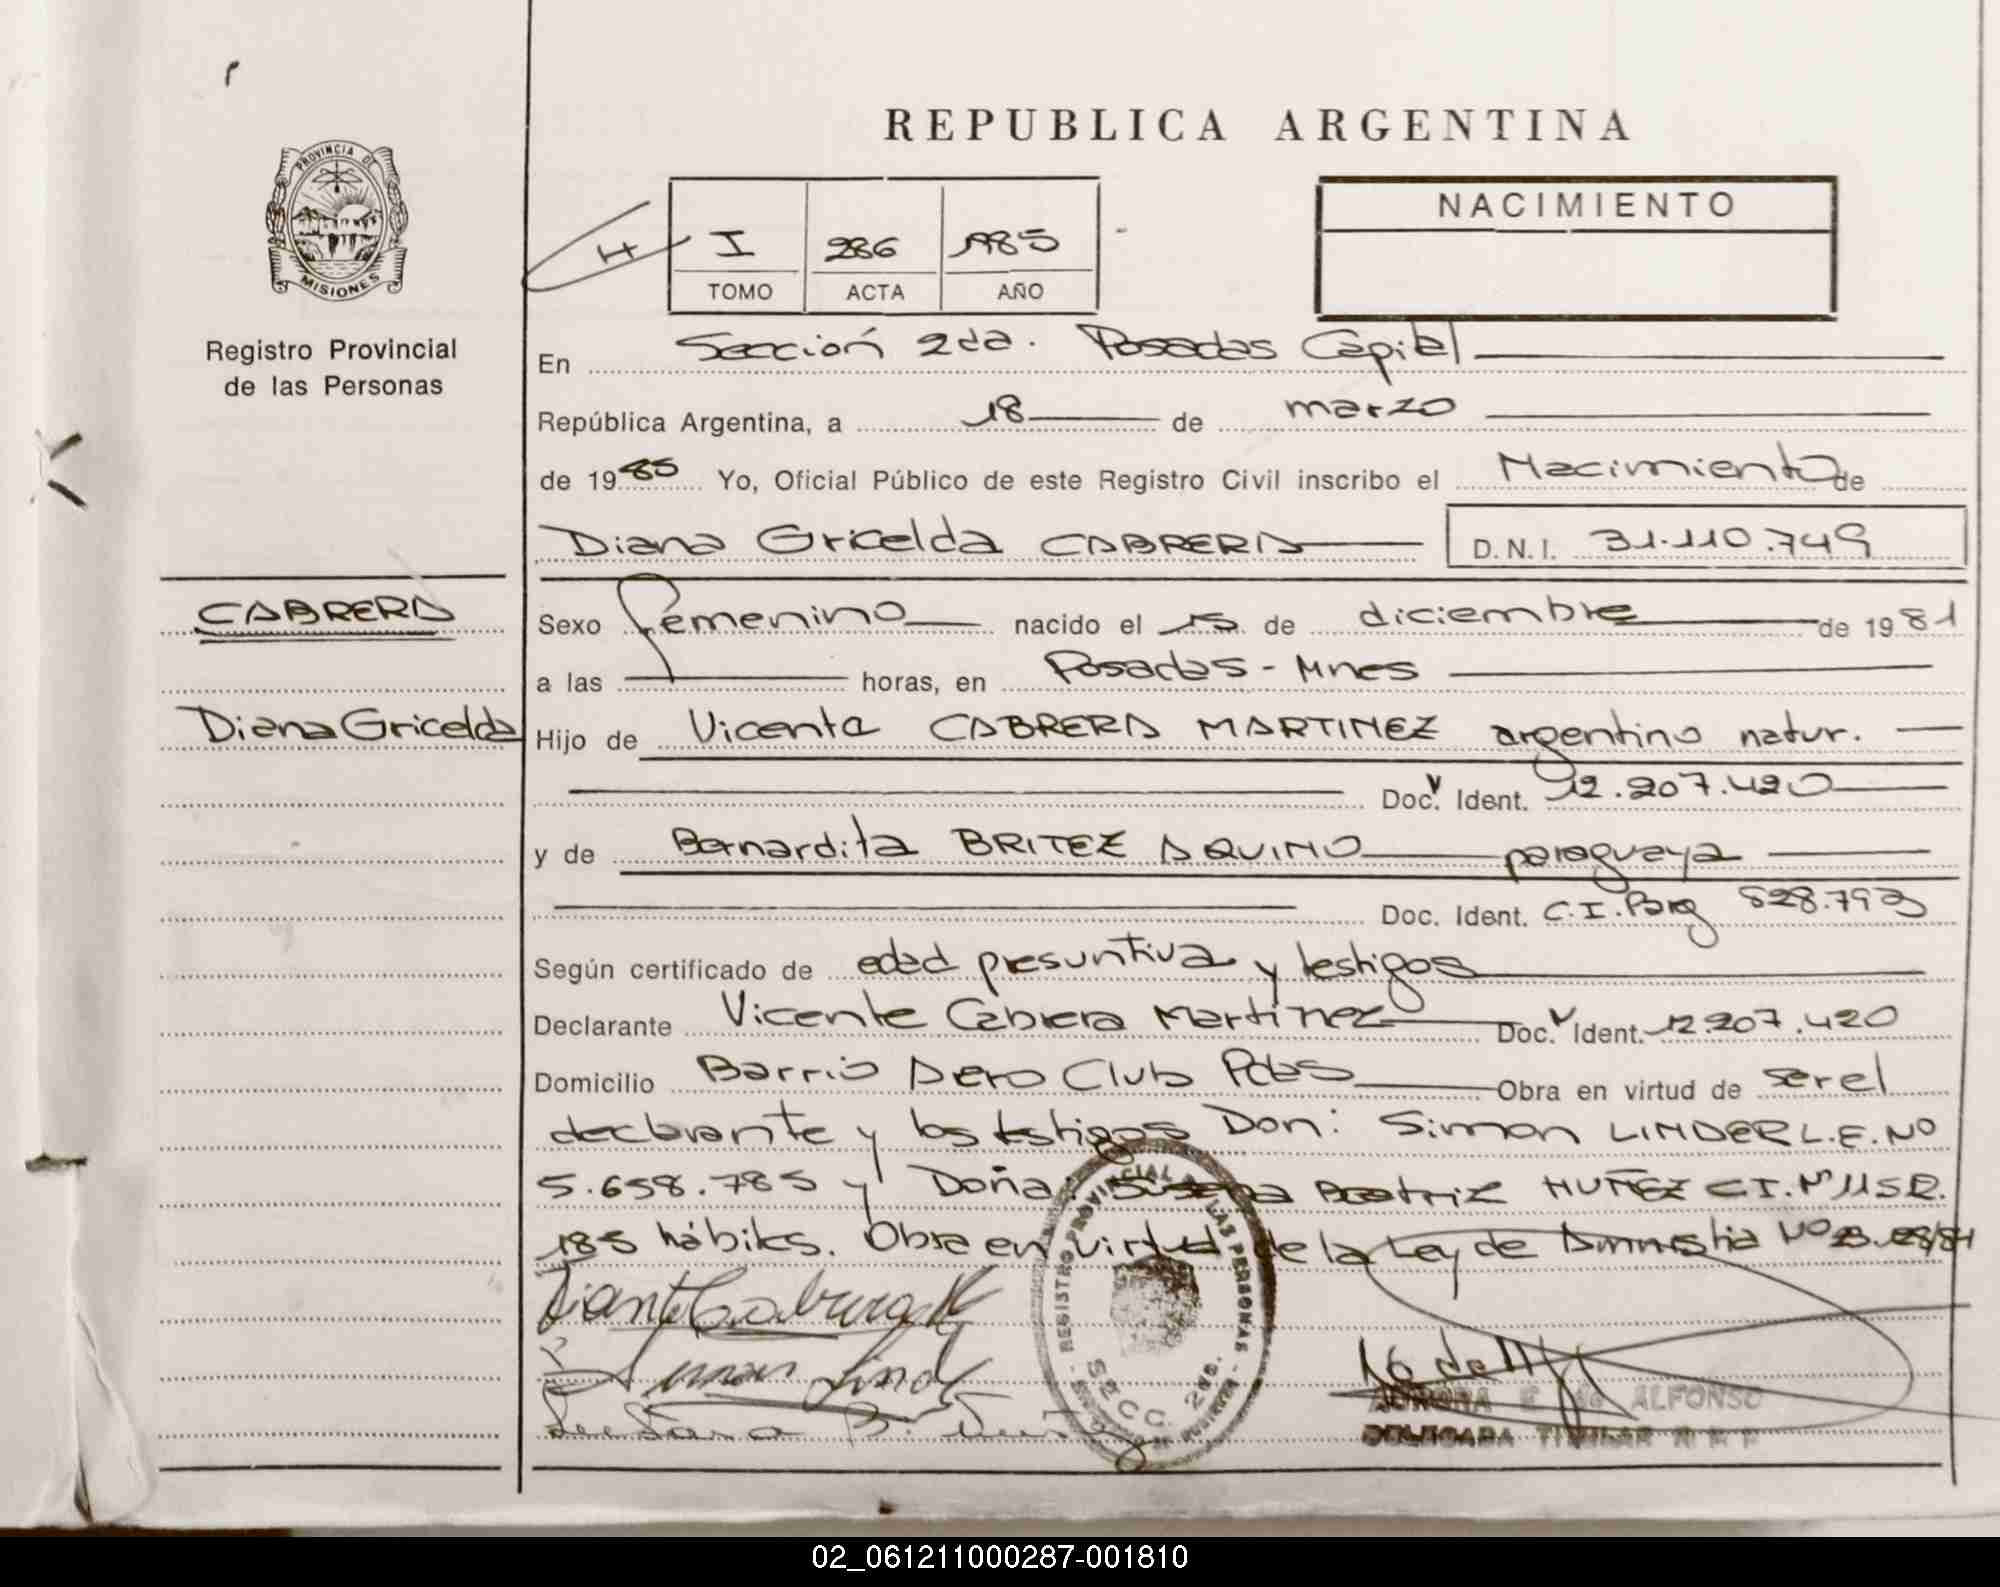 REPUBLICA ARGENTINA
PROVINCIA DE
MISIONES
Registro Provincial
de las Personas
H
I 286 1985
TOMO ACTA AÑO
NACIMIENTO
En Sección 2da. Posadas Capital
República Argentina, a 18 de marzo
de 1985 Yo, Oficial Público de este Registro Civil inscribo el Nacimiento de
Diana Gricelda CABRERA D.N.I. 31.110.749
CABRERA
Diana Gricelda
Sexo femenino nacido el 15 de diciembre de 1981
a las horas, en Posadas - Mnes
Hijo de Vicente CABRERA MARTINEZ argentino natur.
Doc. Ident. 12.207.420
y de Bernardita BRITEZ AQUINO paraguaya
Doc. Ident. C.I. Prg 828.793
Según certificado de edad presuntiva y testigos
Declarante Vicente Cabrera Martinez Doc. Ident. 12.207.420
Domicilio Barrio Aero Club Pdas Obra en virtud de ser el
declarante y los testigos Don: Simon LINDER L.E. No
5.658.785 y Doña: Susana Beatriz NUÑEZ C.I. Nº 115R.
185 hábiles. Obra en virtud de la Ley de Amnistia Nº
REGISTRO PROVINCIAL DE LAS PERSONAS
SECC. 2da.
AURORA E. de ALFONSO
DELEGADA TITULAR R P P
02_061211000287-001810